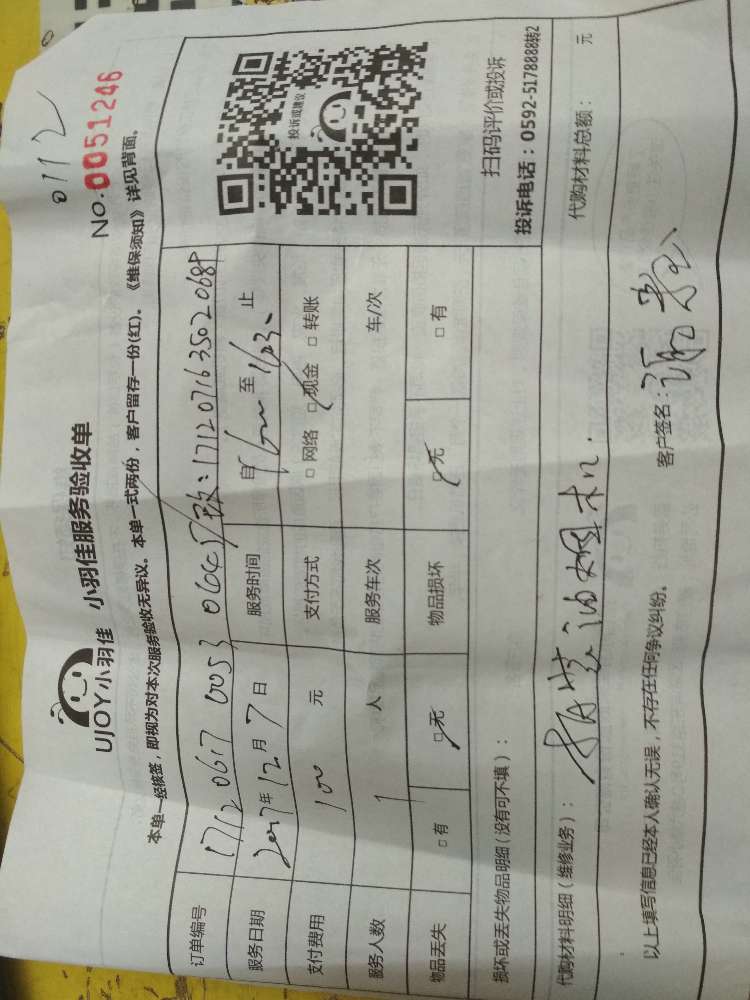 0112
UJOY小羽佳 小羽佳服务验收单
NO.0051246
本单一经核签，即视为对本次服务验收无异议。本单一式两份，客户留存一份(红)。《维保须知》详见背面。
订单编号 1712 0617 0053 改：17120716350206
服务日期 2017年12月7日 服务时间 自 至 止
支付费用 100 元 支付方式 □网络 □现金 □转账
服务人数 1 人 服务车次 车/次
物品丢失 □有 □无 物品损坏 □无 □有
投诉或建议
扫码评价或投诉
投诉电话：0592-5178888转2
损坏或丢失物品明细（没有可不填）：
代购材料明细（维修业务）： 拆装油烟机.
代购材料总额： 元
以上填写信息已经本人确认无误，不存在任何争议纠纷。 客户签名：